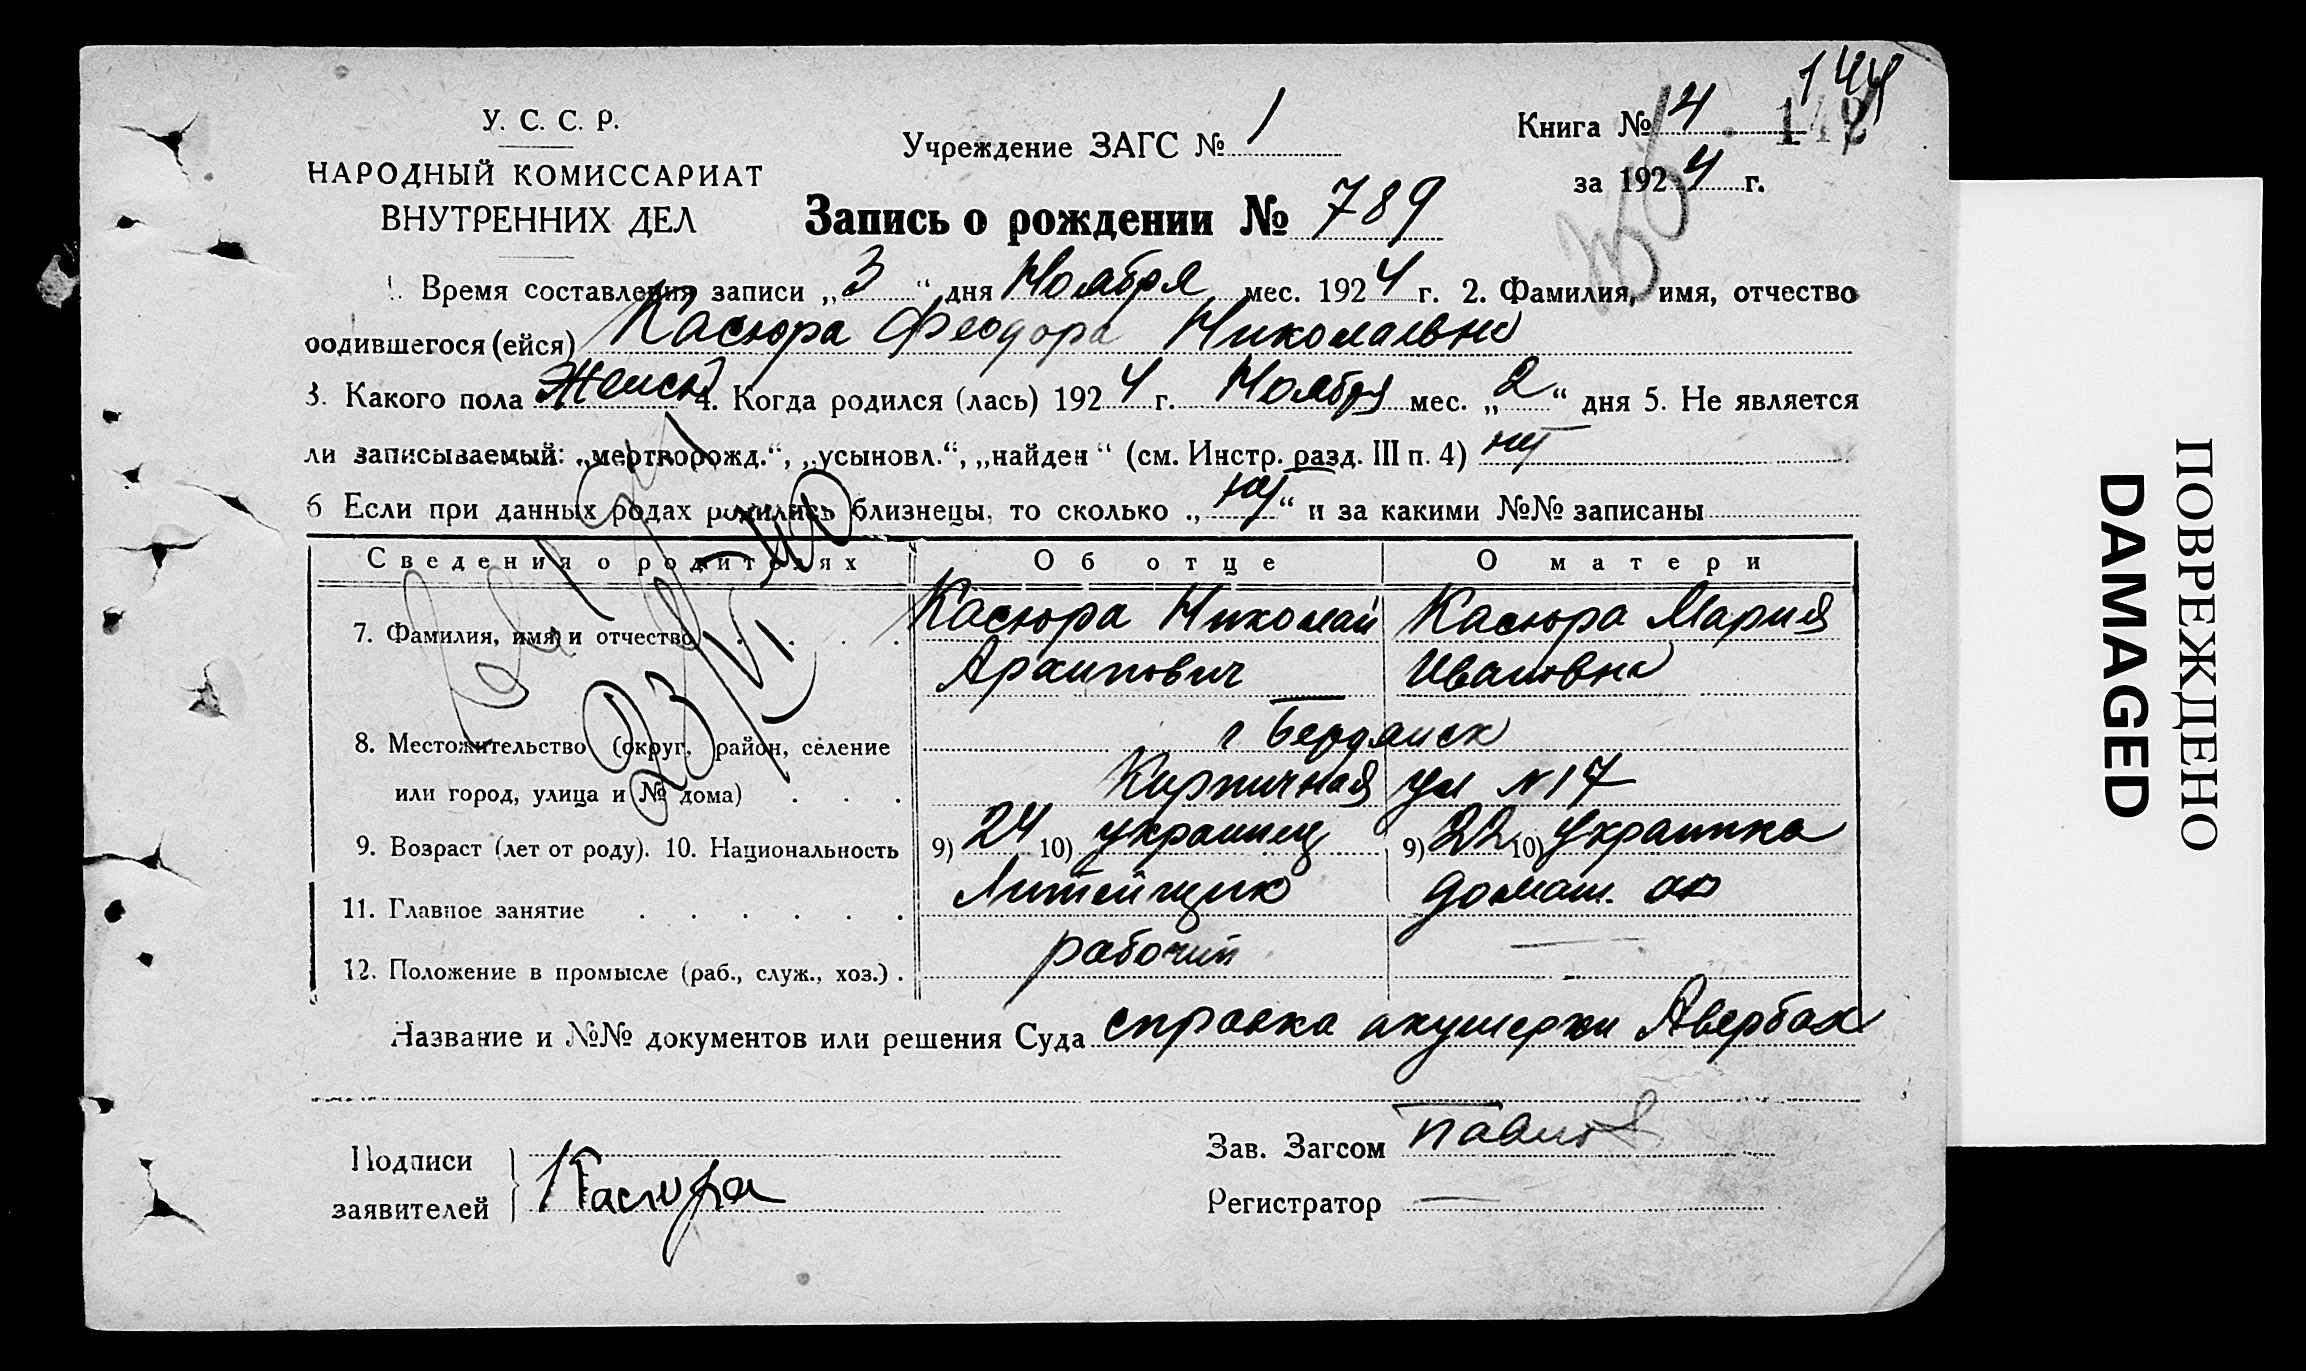 144
142
У. С. С. Р.
НАРОДНЫЙ КОМИССАРИАТ
ВНУТРЕННИХ ДЕЛ
Учреждение ЗАГС № 1
Книга № 4
за 1924 г.
Запись о рождении № 789
1. Время составления записи „3“ дня Ноября мес. 1924 г. 2. Фамилия, имя, отчество
родившегося (ейся) Касюра Феодора Николаевна
3. Какого пола Женск 4. Когда родился (лась) 1924 г. Ноября мес. „2“ дня 5. Не является
ли записываемый: „мертворожд.“, „усыновл.“, „найден“ (см. Инстр. разд. III п. 4) нет
6 Если при данных родах родились близнецы, то сколько „нет“ и за какими №№ записаны
Сведения о родителях Об отце О матери
7. Фамилия, имя и отчество Касюра Николай Касюра Мария
Архипович Ивановна
8. Местожительство (округ, район, селение г Бердянск
или город, улица и № дома) Кирпичная ул N 17
9. Возраст (лет от роду). 10. Национальность 9) 24 10) украинец 9) 22 10) Украинка
11. Главное занятие Литейщик домаш. хоз
12. Положение в промысле (раб., служ., хоз.) рабочий —
Название и №№ документов или решения Суда справка акушерки Авербах
Подписи
заявителей Касюра
Зав. Загсом Павлов
Регистратор —
ПОВРЕЖДЕНО
DAMAGED